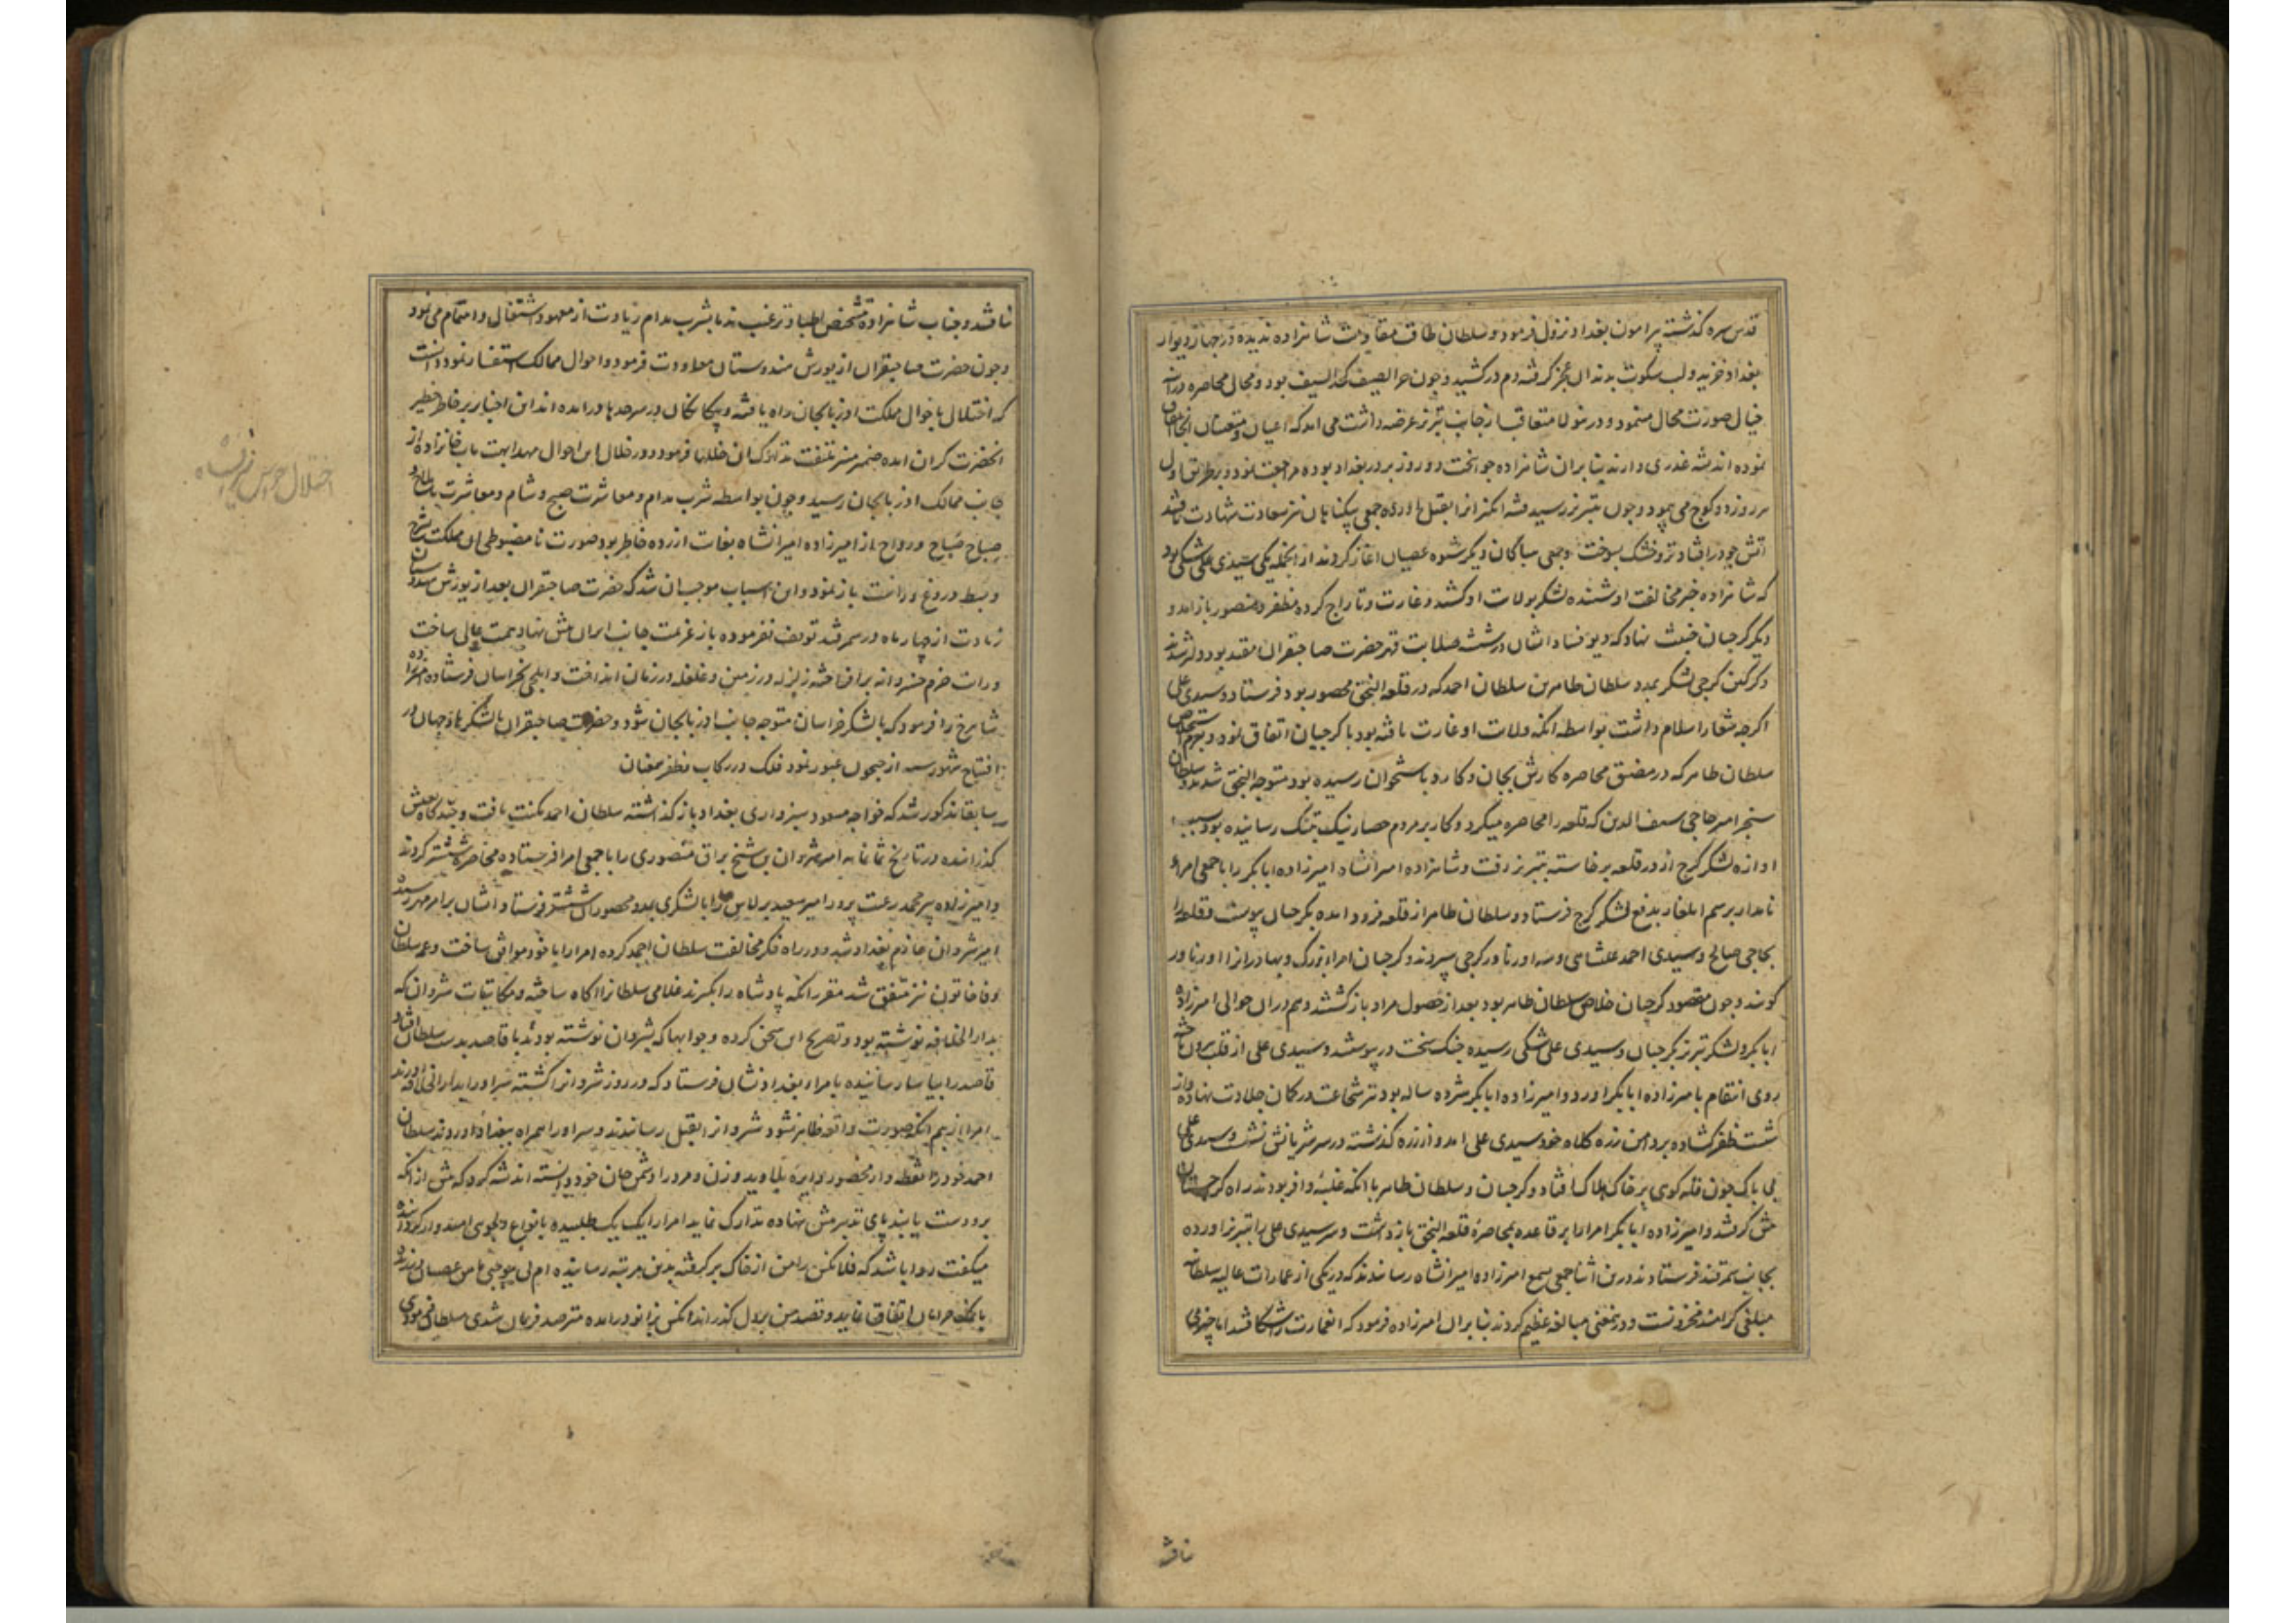 قدس سره گذشته پیرامون بغداد نزول فرمود و سلطان طاقت مقاومت شاهزاده ندیده در چهار دیوار
بغداد خزید و لب سکوت بدندان عجز گرفته دم در کشید و چون حر الصیف کحد السیف بود و مجال محاصره در آن
خیال صورت محال مینمود و درینولا متعاقب از جانب تبریز عرضه داشت می امد که اعیان و متعینان انجا اتفاق
نموده اندیشه غدری دارند بنابران شاهزاده جوانبخت دو روز بر در بغداد بوده مراجعت نمود و بر طریق اول
هر روز دو کوچ می پیمود و چون بتبریز رسید فتنه انگیزانرا بقتل اورد و جمعی بیگناهان نیز سعادت شهادت یافتند
آتش چو در افتاد تر و خشک بسوخت و جمعی دیگر شیوه عصیان اغاز کردند از انجمله یکی سیدی علی شکی بود
که شاهزاده خبر مخالفت او شنیده لشکر بولایت او کشید و غارت و تاراج کرده مظفر و منصور باز امد و
دیگر گرجیان خبیث نهاد که دیو فساد ایشان در شیشه صلابت قهر حضرت صاحبقران مقید بود دلیر شدند
و کرکین گرجی لشکر بمدد سلطان طاهر بن سلطان احمد که در قلعه النجق محصور بود فرستاد و سیدی علی
اگرچه شعار اسلام داشت بواسطه انکه ولایت او غارت یافته بود با گرجیان اتفاق نمود و بعزم استخلاص
سلطان طاهر که در مضیق محاصره کارش بجان و کارد باستخوان رسیده بود متوجه النجق شدند و سلطان
سنجر امیر حاجی سیف الدین که قلعه را محاصره میکرد و کار بر مردم حصار نیک بتنک رسانیده بود بسبب
اوازه لشکر گرج از در قلعه برخاسته بتبریز رفت و شاهزاده امیرانشاه امیرزاده ابابکر را با جمعی امراء
نامدار برسم ایلغار بدفع لشکر گرج فرستاد و سلطان طاهر از قلعه فرود امده بگرجیان پیوست و قلعه را
بحاجی صالح و سیدی احمد و سه ازناور گرجی سپردند و گرجیان امراء بزرک و بهادرانرا ازناور
گویند و چون مقصود گرجیان خلاص سلطان طاهر بود بعد از حصول مراد باز گشتند و هم دران حوالی امیرزاده
ابابکر و لشکر تبریز بگرجیان و سیدی علی شکی رسیده جنک سخت در پیوستند و سیدی علی از قلب بیرون تاخته
روی انتقام بامیرزاده ابابکر اورد و امیرزاده ابابکر هژده ساله بود تیر شجاعت در کمان جلادت نهاده و از
شست ظفر گشاده بر دامن زره کلاه خود سیدی علی امد و از زره گذشته در سر شریانش نشست و سیدی علی
بی باک چون قله کوهی بر خاک هلاک افتاد و گرجیان و سلطان طاهر با انکه غلبه وافر بودند راه گرجستان
پیش گرفتند و امیرزاده ابابکر امرا را بر قاعده بمحاصره قلعه النجق باز داشت و سر سیدی علی را بتبریز اورده
بجانب سمرقند فرستادند درین اثنا جمعی بسمع امیرزاده امیرانشاه رسانیدند که در یکی از عمارات عالیه سلطانیه
مبلغی گرامند مخزونست و درینمعنی مبالغه عظیم کردند بنابران امیرزاده فرمود که انعمارت را بشکافتند اما چیزی
نیافتند
نیافتند و جناب شاهزاده بتشخیص اطبا و ترغیب ندما بشرب مدام زیادت از معهود اشتغال و اهتمام می نمود
و چون حضرت صاحبقران از یورش هندوستان معاودت فرمود و احوال ممالک استفسار نمود دانست
که اختلالی باحوال مملکت اذربایجان راه یافته و بیگانگان در سرحدها در امده اند این اخبار بر خاطر خطیر
انحضرت گران امده ضمیر منیر ملتفت تدارک ان خللها فرمود و در خلال این احوال مهد ابهت ماب خانزاده از
جانب ممالک اذربایجان رسید و چون بواسطه شرب مدام و معاشرت صبح و شام و معاشرت با ملاح و
صباح صباح و رواح از امیرزاده امیرانشاه بغایت ازرده خاطر بود صورت نامضبوطی ان مملکت بشرح
و بسط دروغ و راست باز نمود و این اسباب موجب ان شد که حضرت صاحبقران بعد از یورش هندوستان
زیادت از چهار ماه در سمرقند توقف نفرموده باز عزیمت جانب ایران پیش نهاد همت عالی ساخت
و رایت عزم خسروانه بر افراخته زلزله در زمین و غلغله در زمان انداخت و ایلچی بخراسان فرستاده امیرزاده
شاهرخ را فرمود که با لشکر خراسان متوجه جانب اذربایجان شود و حضرت صاحبقران با لشکرها از جهان در
افتتاح شهور سنه از جیحون عبور نمود فلک در رکاب و ظفر همعنان
سابقا مذکور شد که خواجه مسعود سبزواری بغداد باز گذاشته سلطان احمد مکنت یافت و چند گاه بعیش
گذرانیده در تاریخ ثمانمایه امیر شروان بن شیخ براق منصوری را با جمعی امرا فرستاده محاصره ششتر کردند
و امیرزاده پیر محمد رعیت پرور امیر سعید برلاس را با لشکری بمدد محصوران ششتر فرستاد و ایشان برامهرمز رسیده
امیر شروان عازم بغداد شد و در راه فکر مخالفت سلطان احمد کرده امرا را با خود موافق ساخت و عمه سلطان
وفا خاتون نیز متفق شد مقرر انکه پادشاه را بگیرند غلامی سلطانرا اگاه ساخته و مکاتیبات شروان که
بدار الخلافه نوشته بود و تصریح این سخن کرده و جوابها که بشروان نوشته بودند با قاصد بدست سلطان افتاد
قاصد را بیاسا رسانیده بامراء بغداد نشان فرستاد که در روز شروانرا کشته سر او را بدار الخلافه اورند
امرا از بیم انکه صورت واقعه ظاهر نشود شروانرا بقتل رسانیدند و سر او را همراه ببغداد اوردند سلطان
احمد خود را نقطه وار محصور دایره بلا دید و زن و مرد را دشمن جان خود دانسته اندیشه کرد که پیش از انکه
برو دست یابند پای تدبیر پیش نهاده تدارک نماید امرا را یک یک طلبیده بانواع دلجوئی امیدوار گردانیده
میگفت روا باشد که فلانکس را من از خاک برگرفته بدین مرتبه رسانیده ام بی موجبی با من عصیان ورزد و
با مخالفان اتفاق نماید و قصد من بر دل گذراند انکس بزانو در امده مترصد فرمان شدی سلطان فرمودی